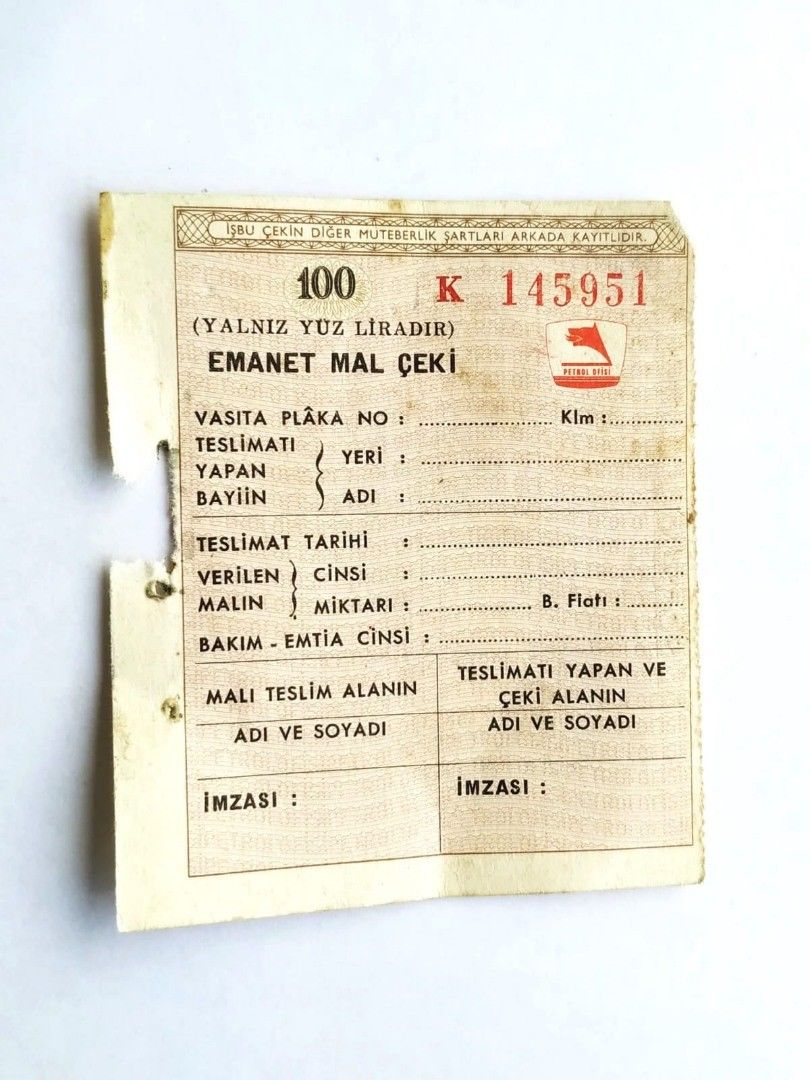 İŞBU ÇEKİN DİĞER MUTEBERLİK ŞARTLARI ARKADA KAYITLIDIR.
100 K 145951
(YALNIZ YÜZ LİRADIR)
EMANET MAL ÇEKİ
PETROL OFİSİ
VASITA PLÂKA NO : Klm :
TESLİMATI YAPAN BAYİİN
YERİ :
ADI :
TESLİMAT TARİHİ :
VERİLEN MALIN
CİNSİ :
MİKTARI : B. Fiatı :
BAKIM - EMTİA CİNSİ :
MALI TESLİM ALANIN
TESLİMATI YAPAN VE
ÇEKİ ALANIN
ADI VE SOYADI
ADI VE SOYADI
İMZASI :
İMZASI :